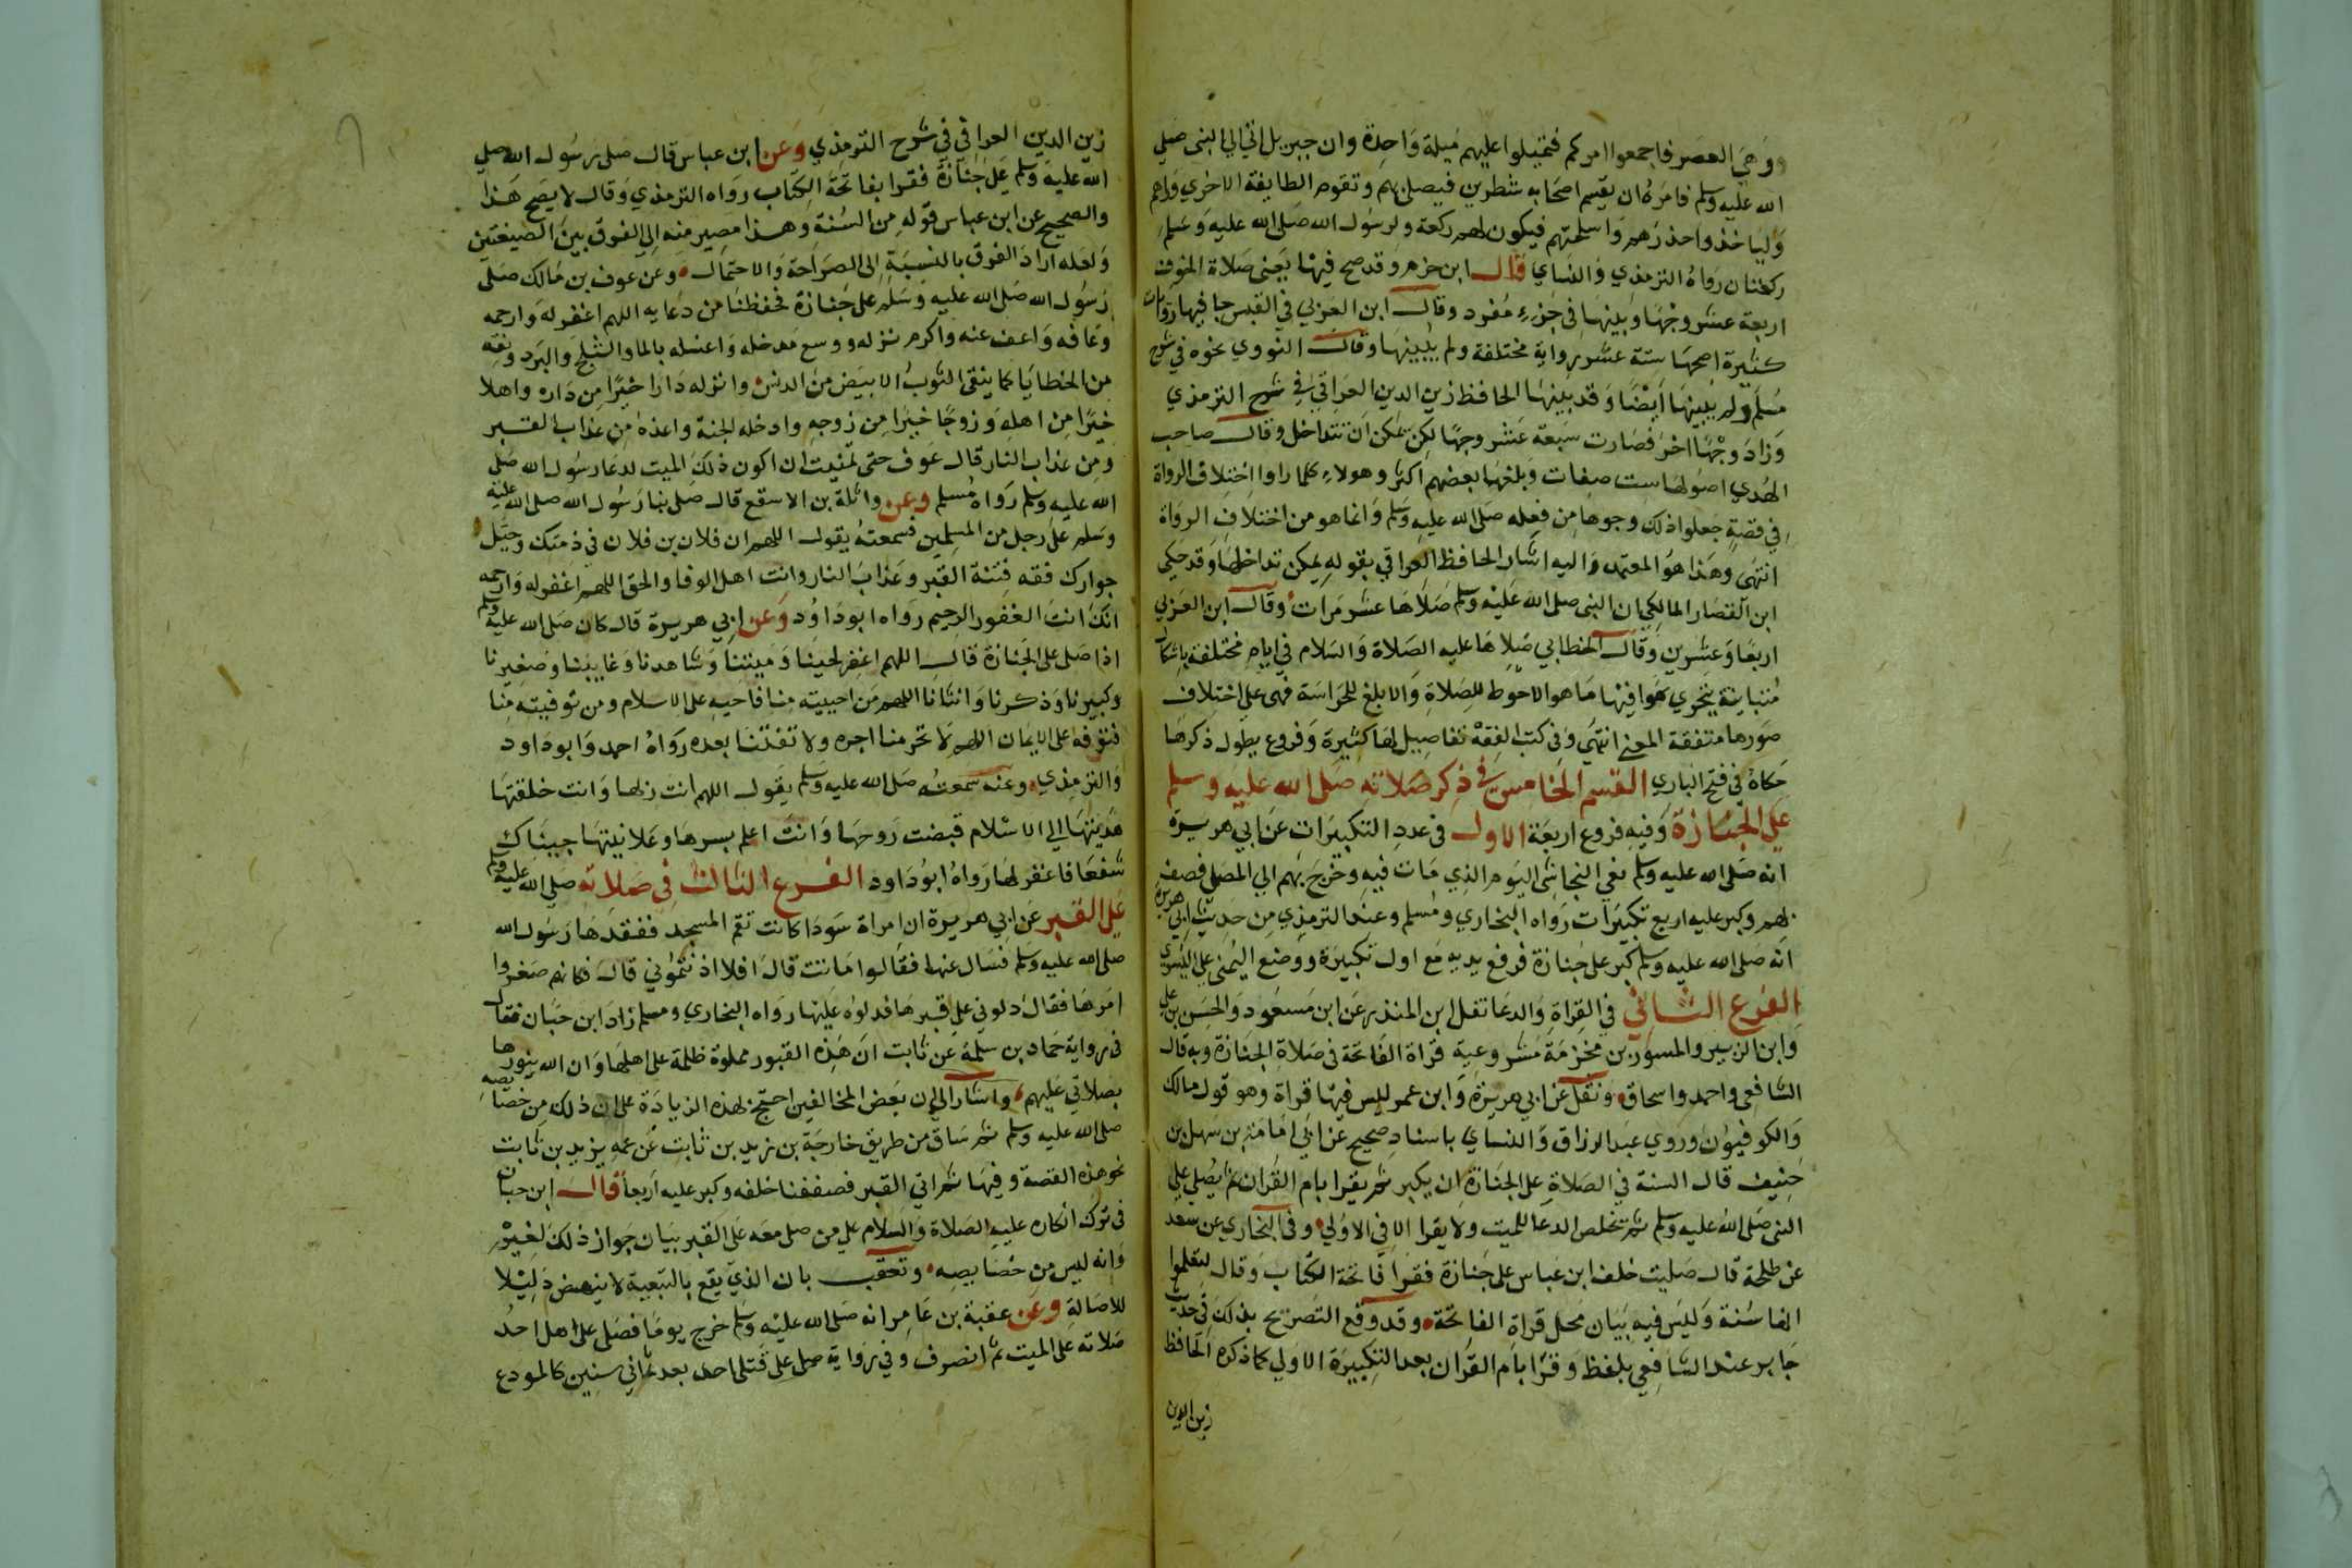 وهي العصر فاجمعوا امركم فتميلوا عليهم ميلة واحدة وان جبريل اتي الي النبي صلي
الله عليه وسلم فامره ان يقسم اصحابه شطرين فيصلي بهم وتقوم الطايفة الاخري وراهم
وليأخذوا حذرهم واسلحتهم فيكون لهم ركعة ولرسول الله صلي الله عليه وسلم
ركعتان رواه الترمذي والنساي قال ابن حزم وقد صح فيها يعني صلاة الخوف
اربعة عشر وجها وبينها في جزء مفرد وقال ابن العربي في القبس جا فيها روايات
كثيرة اصحها ستة عشر رواية مختلفة ولم يبينها وقال النووي نحوه في شرح
مسلم ولم يبينها أيضا وقد بينها الحافظ زين الدين العراقي في شرح الترمذي
وزاد وجها اخر فصارت سبعة عشر وجها لكن يمكن أن تتداخل وقال صاحب
الهدي اصولها ست صفات وبلغها بعضهم اكثر وهولاء كلما راوا اختلاف الرواة
في قصة جعلوا ذلك وجوها من فعله صلى الله عليه وسلم وانما هو من اختلاف الرواة
انتهى وهذا هو المعتمد واليه اشار الحافظ العراقي بقوله يمكن تداخلها وقد حكي
ابن القصار المالكي ان النبي صلى الله عليه وسلم صلاها عشر مرات وقال ابن العربي
اربعا وعشرين وقال الخطابي صلاها عليه الصلاة والسلام في ايام مختلفة باشكال
متباينة يتحري فيها ما هو الاحوط للصلاة والابلغ للحراسة فهي علي اختلاف
صورها متفقة المعني انتهي وفي كتب الفقه تفاصيل لها كثيرة وفروع يطول ذكرها
حكاه في فتح الباري القسم الخامس في ذكر صلاته صلى الله عليه وسلم
علي الجنازة وفيه فروع اربعة الاول في عدد التكبيرات عن ابي هريرة
انه صلى الله عليه وسلم نعي النجاشي اليوم الذي مات فيه وخرج بهم الي المصلي فصف
بهم وكبر عليه اربع تكبيرات رواه البخاري ومسلم وعند الترمذي من حديث ابي هريرة
انه صلى الله عليه وسلم كبر على جنازة فرفع يديه مع اول تكبيرة ووضع اليمني علي اليسري
الفرع الثاني في القراة والدعا نقل ابن المنذر عن ابن مسعود والحسن بن علي
وابن الزبير والمسور بن مخرمة مشروعية قراة الفاتحة في صلاة الجنازة وبه قال
الشافعي واحمد واسحاق ونقل عن ابي هريرة وابن عمر ليس فيها قراة وهو قول مالك
والكوفيون وروي عبد الرزاق والنساي باسناد صحيح عن ابي امامة بن سهل بن
حنيف قال السنة في الصلاة على الجنازة ان يكبر ثم يقرا بام القران ثم يصلي علي
النبي صلى الله عليه وسلم ثم يخلص الدعا للميت ولا يقرا الا في الاولي وفي البخاري عن سعد
عن طلحة قال صليت خلف ابن عباس على جنازة فقرا فاتحة الكتاب وقال لتعلموا
انها سنة وليس فيه بيان محل قراة الفاتحة وقد وقع التصريح بذلك في حديث
جابر عند الشافعي بلفظ وقرا بام القران بعد التكبيرة الاولي كما ذكره الحافظ
زين الدين
زين الدين العراقي في شرح الترمذي وعن ابن عباس قال صلى رسول الله صلي
الله عليه وسلم على جنازة فقرا بفاتحة الكتاب رواه الترمذي وقال لا يصح هذا
والصحيح عن ابن عباس قوله من السنة وهذا مصير منه الي الفرق بين الصيغتين
ولعله اراد الفرق بالنسبة الى الصراحة والاحتمال وعن عوف بن مالك صلى
رسول الله صلى الله عليه وسلم على جنازة فحفظنا من دعايه اللهم اغفر له وارحمه
وعافه واعف عنه واكرم نزله ووسع مدخله واغسله بالما والثلج والبرد ونقه
من الخطايا كما ينقى الثوب الابيض من الدنس وانزله دارا خيرا من داره واهلا
خيرا من اهله وزوجا خيرا من زوجه وادخله الجنة واعذه من عذاب القبر
ومن عذاب النار قال عوف حتى تمنيت ان اكون ذلك الميت لدعا رسول الله صلى
الله عليه وسلم رواه مسلم وعن واثلة بن الاسقع قال صلى بنا رسول الله صلى الله عليه
وسلم على رجل من المسلمين فسمعته يقول اللهم ان فلان بن فلان في ذمتك وحبل
جوارك فقه فتنة القبر وعذاب النار وانت اهل الوفا والحق اللهم اغفر له وارحمه
انك انت الغفور الرحيم رواه ابو داود وعن ابي هريرة قال كان صلى الله عليه وسلم
اذا صلى على الجنازة قال اللهم اغفر لحينا وميتنا وشاهدنا وغايبنا وصغيرنا
وكبيرنا وذكرنا وانثانا اللهم من احييته منا فاحيه على الاسلام ومن توفيته منا
فتوفه على الايمان اللهم لا تحرمنا اجره ولا تفتنا بعده رواه احمد وابو داود
والترمذي وعنه سمعته صلى الله عليه وسلم يقول اللهم انت ربها وانت خلقتها
هديتها الي الاسلام قبضت روحها وانت اعلم بسرها وعلانيتها جيناك
شفعا فاغفر لها رواه ابو داود الفرع الثالث في صلاته صلى الله عليه وسلم
علي القبر عن ابي هريرة ان امراة سودا كانت تقم المسجد ففقدها رسول الله
صلى الله عليه وسلم فسال عنها فقالوا ماتت قال افلا اذنتموني قال فكانهم صغروا
امرها فقال دلوني علي قبرها فدلوه فصلى عليها رواه البخاري ومسلم زاد ابن حبان فقال
في رواية حماد بن سلمة عن ثابت ان هذه القبور مملوة ظلمة على اهلها وان الله ينورها
بصلاتي عليهم واشار الي ان بعض المخالفين احتج بهذه الزيادة على ان ذلك من خصايصه
صلى الله عليه وسلم ثم ساق من طريق خارجة بن زيد بن ثابت عن عمه يزيد بن ثابت
نحو هذه القصة وفيها ثم اتي القبر فصففنا خلفه وكبر عليه اربعا قال ابن حبان
في ترك انكاره عليه الصلاة والسلام علي من صلى معه على القبر بيان جواز ذلك لغيره
وانه ليس من خصايصه وتعقب بان الذي يقع بالتبعية لا ينهض دليلا
للاصالة وعن عقبة بن عامر انه صلى الله عليه وسلم خرج يوما فصلى على اهل احد
صلاته على الميت ثم انصرف وفي رواية صلى على قتلى احد بعد ثماني سنين كالمودع